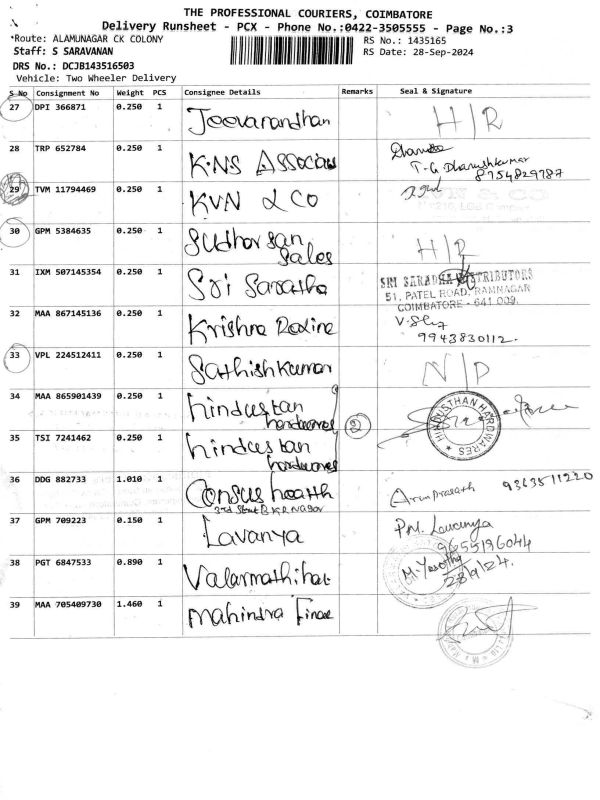 THE PROFESSIONAL COURIERS, COIMBATORE
Delivery Runsheet - PCX - Phone No.:0422-3505555 - Page No.:3
*Route: ALAMUNAGAR CK COLONY RS No.: 1435165
Staff: S SARAVANAN RS Date: 28-Sep-2024
DRS No.: DCJB143516503
Vehicle: Two Wheeler Delivery
S No Consignment No Weight PCS Consignee Details Remarks Seal & Signature
27 DPI 366871 0.250 1 Jeevanandhan H/R
28 TRP 652784 0.250 1 K.NS Associas
T.G Dhanushkumar
8754829787
29 TVM 11794469 0.250 1 KVN & CO
30 GPM 5384635 0.250 1 Sudharsan Sales H/R
31 IXM 507145354 0.250 1 Sri Saratha
SRI SARADHA DISTRIBUTORS
51, PATEL ROAD, RAMNAGAR
COIMBATORE - 641 009.
32 MAA 867145136 0.250 1 Krishna
9943830112.
33 VPL 224512411 0.250 1 Sathishkumar N/D
34 MAA 865901439 0.250 1 hindustan hardwares 2
HINDUSTHAN HARDWARES
35 TSI 7241462 0.250 1 hindustan hardwares
36 DDG 882733 1.010 1 Consus health
3rd Street B.K.R Nagar
Arun prasath 9363511220
37 GPM 709223 0.150 1 Lavanya
P.M. Lavanya
9655196044
38 PGT 6847533 0.890 1
M. Yasotha
28/9/24.
39 MAA 705409730 1.460 1 Mahindra Finance